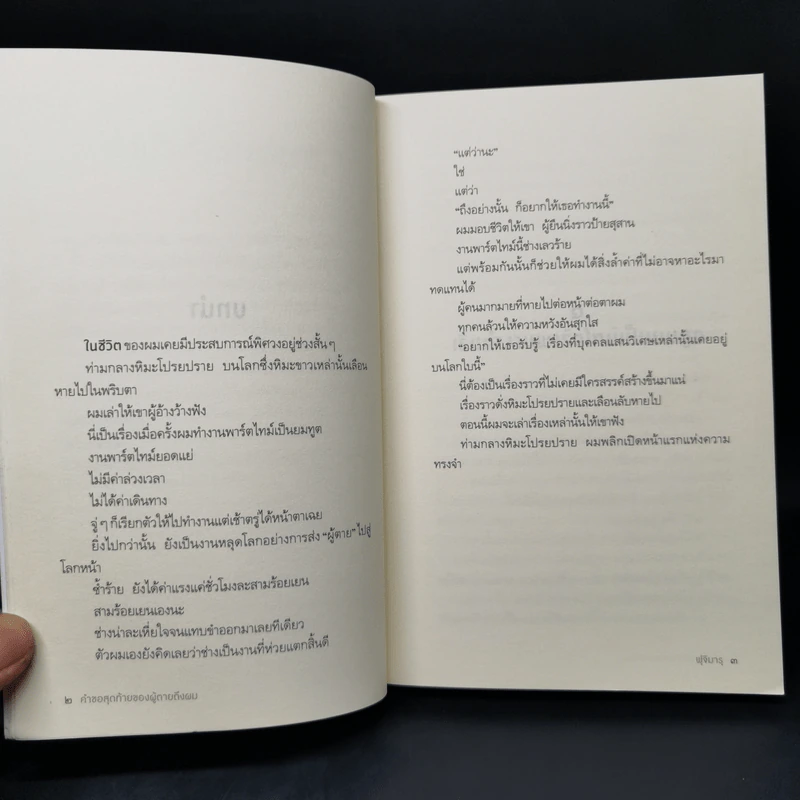 ในชีวิต ของผมเคยมีประสบการณ์พิศวงอยู่ช่วงสั้น ๆ
ท่ามกลางหิมะโปรยปราย บนโลกซึ่งหิมะขาวเหล่านั้นเลือน
หายไปในพริบตา
ผมเล่าให้เขาผู้อ้างว้างฟัง
นี่เป็นเรื่องเมื่อครั้งผมทำงานพาร์ตไทม์เป็นยมทูต
งานพาร์ตไทม์ยอดแย่
ไม่มีค่าล่วงเวลา
ไม่ได้ค่าเดินทาง
จู่ ๆ ก็เรียกตัวให้ไปทำงานแต่เช้าตรู่ได้หน้าตาเฉย
ยิ่งไปกว่านั้น ยังเป็นงานหลุดโลกอย่างการส่ง “ผู้ตาย” ไปสู่
โลกหน้า
ซ้ำร้าย ยังได้ค่าแรงแค่ชั่วโมงละสามร้อยเยน
สามร้อยเยนเองนะ
ช่างน่าละเหี่ยใจจนแทบขำออกมาเลยทีเดียว
ตัวผมเองยังคิดเลยว่าช่างเป็นงานที่ห่วยแตกสิ้นดี
๒ คำขอสุดท้ายของผู้ตายถึงผม
“แต่ว่านะ”
ใช่
แต่ว่า
“ถึงอย่างนั้น ก็อยากให้เธอทำงานนี้”
ผมมอบชีวิตให้เขา ผู้ยืนนิ่งราวป้ายสุสาน
งานพาร์ตไทม์นี้ช่างเลวร้าย
แต่พร้อมกันนั้นก็ช่วยให้ผมได้สิ่งล้ำค่าที่ไม่อาจหาอะไรมา
ทดแทนได้
ผู้คนมากมายที่หายไปต่อหน้าต่อตาผม
ทุกคนล้วนให้ความหวังอันสุกใส
“อยากให้เธอรับรู้ เรื่องที่บุคคลแสนวิเศษเหล่านั้นเคยอยู่
บนโลกใบนี้”
นี่ต้องเป็นเรื่องราวที่ไม่เคยมีใครสรรค์สร้างขึ้นมาแน่
เรื่องราวดั่งหิมะโปรยปรายและเลือนลับหายไป
ตอนนี้ผมจะเล่าเรื่องเหล่านั้นให้เขาฟัง
ท่ามกลางหิมะโปรยปราย ผมพลิกเปิดหน้าแรกแห่งความ
ทรงจำ
ฟุจิมารุ ๓